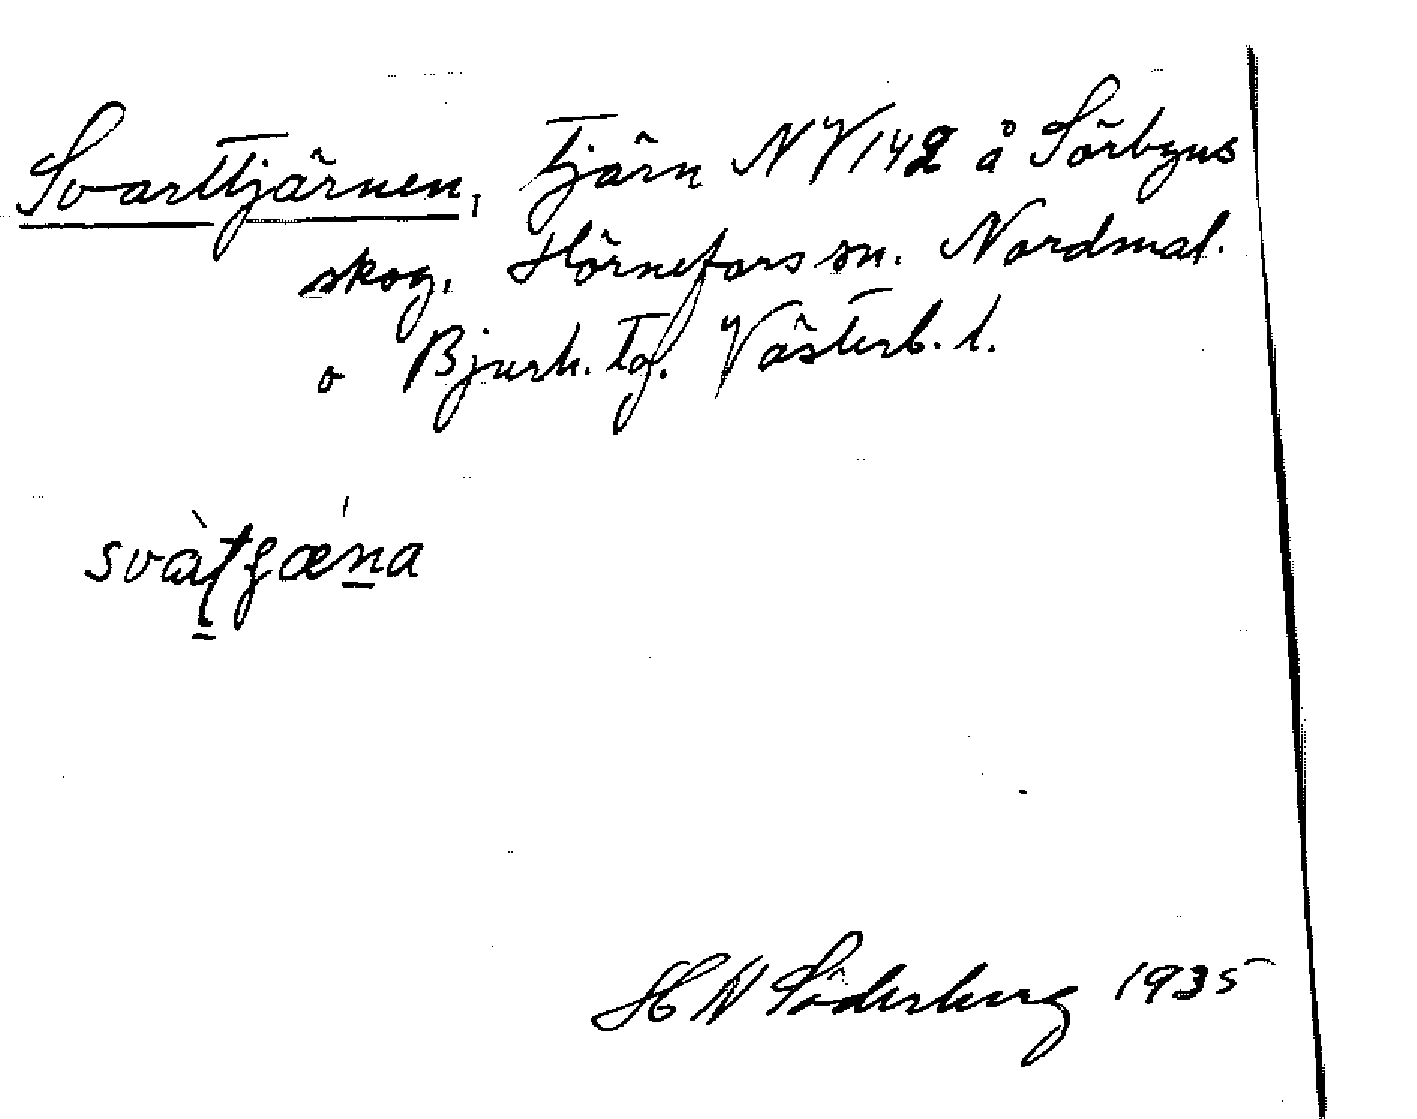 Svarttjärnen, tjärn NV 142 å Sörbyns
skog. Hörnefors sn. Nordmal.
o Bjurh. tg. Västerb. l.
H N Söderberg 1935